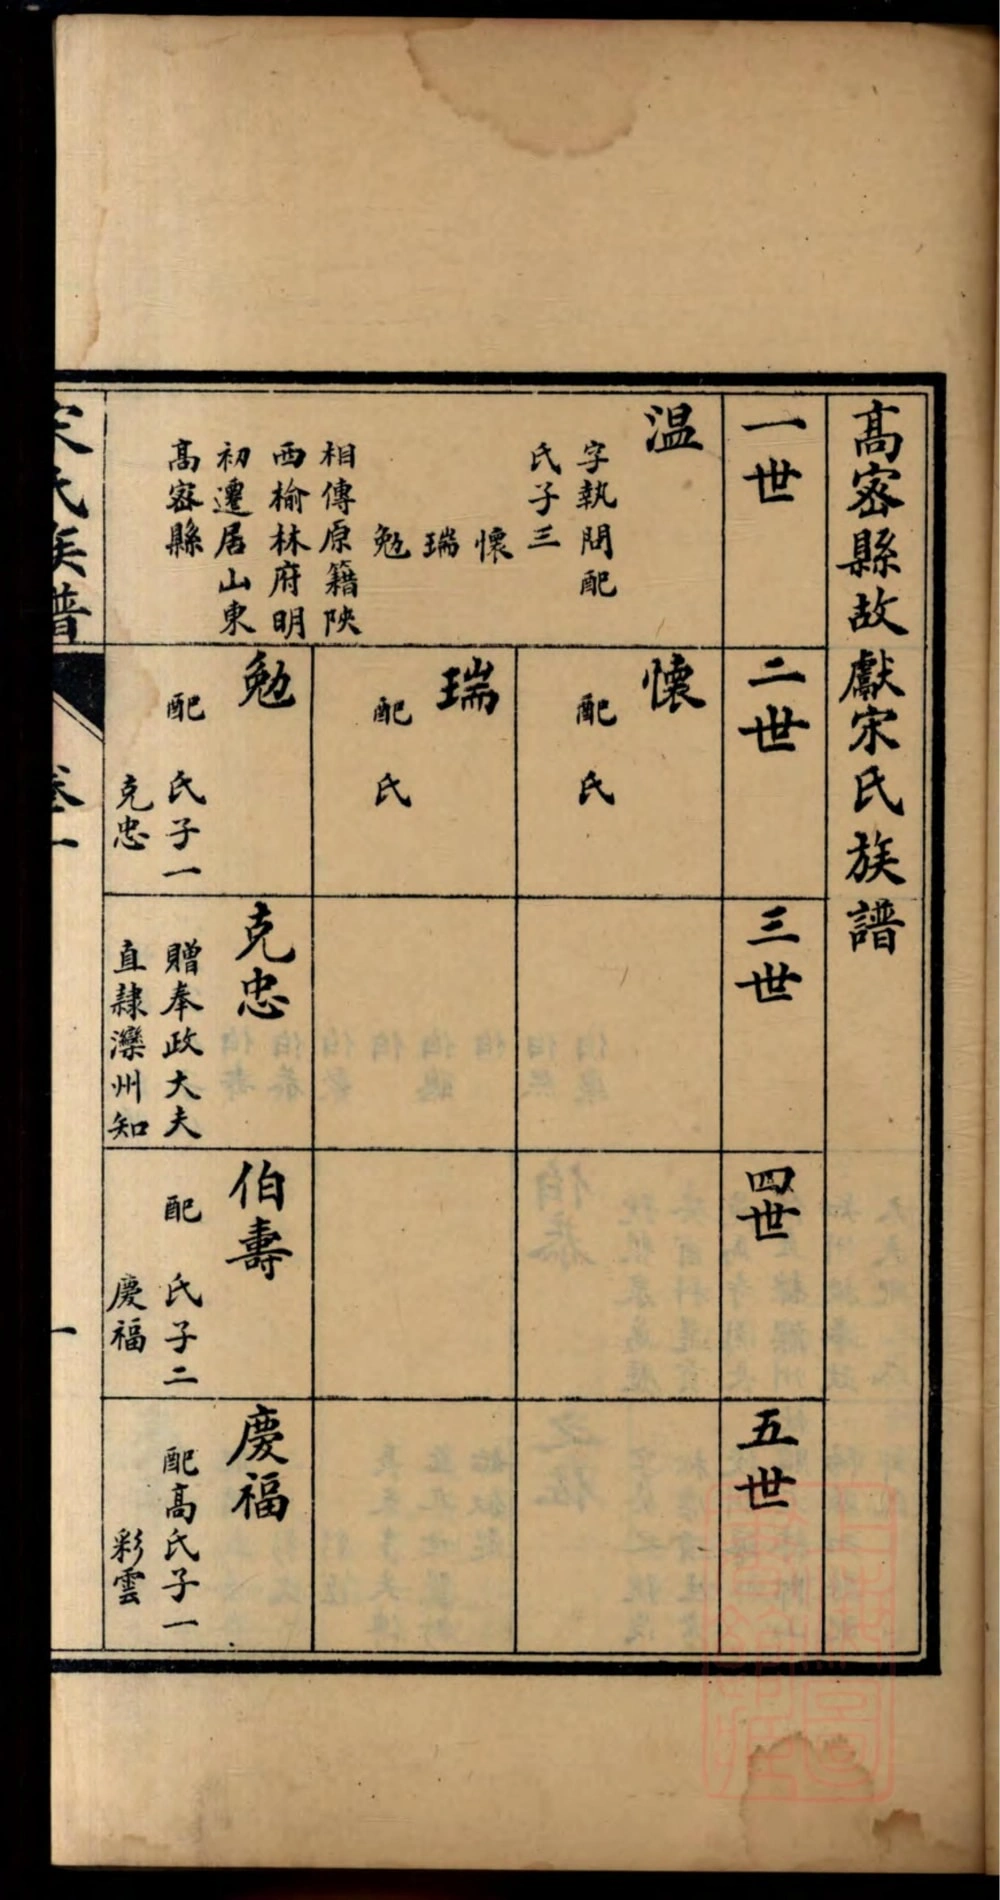 高密縣故獻宋氏族譜
一世
温
字執問配
氏子三
懷
瑞
勉
相傳原籍陝
西榆林府明
初遷居山東
高密縣
二世
懷
配 氏
瑞
配 氏
勉
配 氏子一
克忠
三世
克忠
贈奉政大夫
直隸灤州知
四世
伯壽
配 氏子二
慶福
五世
慶福
配高氏子一
彩雲
宋氏族譜
卷一
一